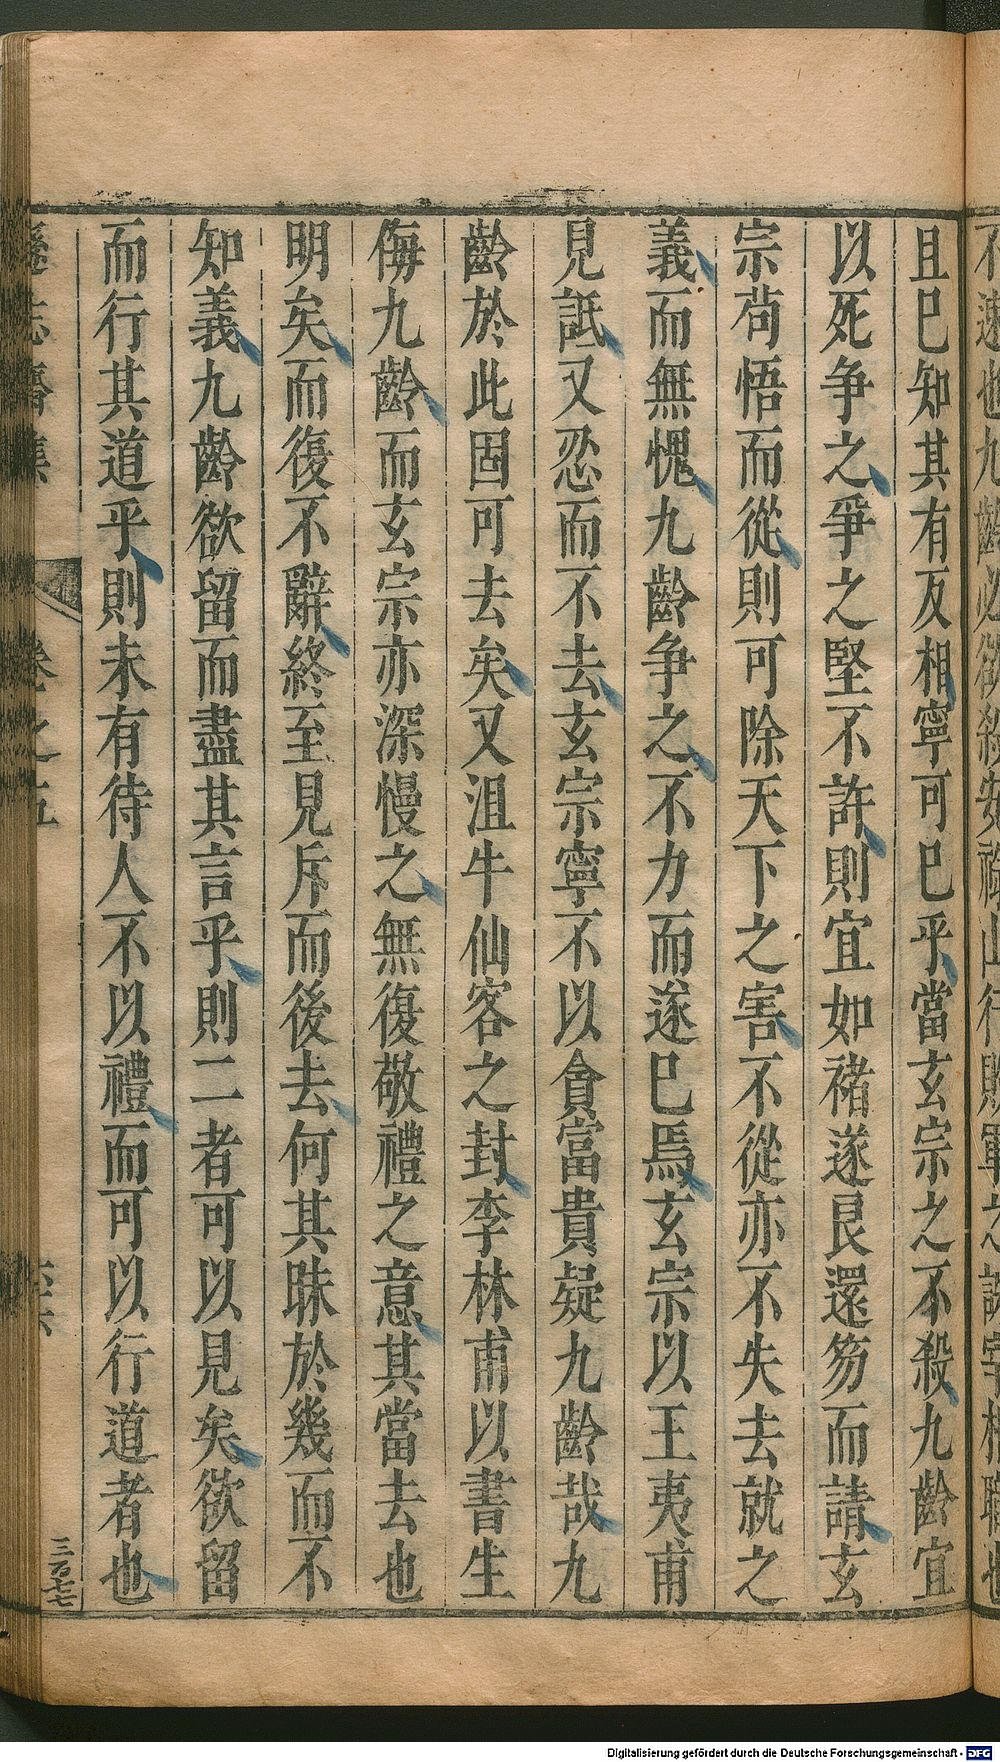 且已知其有反相寧可已乎當玄宗之不殺九齡宜
以死争之爭之堅不許則宜如褚遂良還笏而請玄
宗茍悟而從則可除天下之害不從亦不失去就之
義而無愧九齡争之不力而遂已焉玄宗以王夷甫
見詆又忍而不去玄宗寧不以貪富貴疑九齡哉九
齡於此固可去矣又沮牛仙客之封李林甫以書生
侮九齡而玄宗亦深慢之無復敬禮之意其當去也
明矣而復不辭終至見斥而後去何其昧於幾而不
知義九齡欲留而盡其言乎則二者可以見矣欲留
而行其道乎則未有待人不以禮而可以行道者也
遜志齋集
卷之五
三百七十七
Digitalisierung gefördert durch die Deutsche Forschungsgemeinschaft - DFG